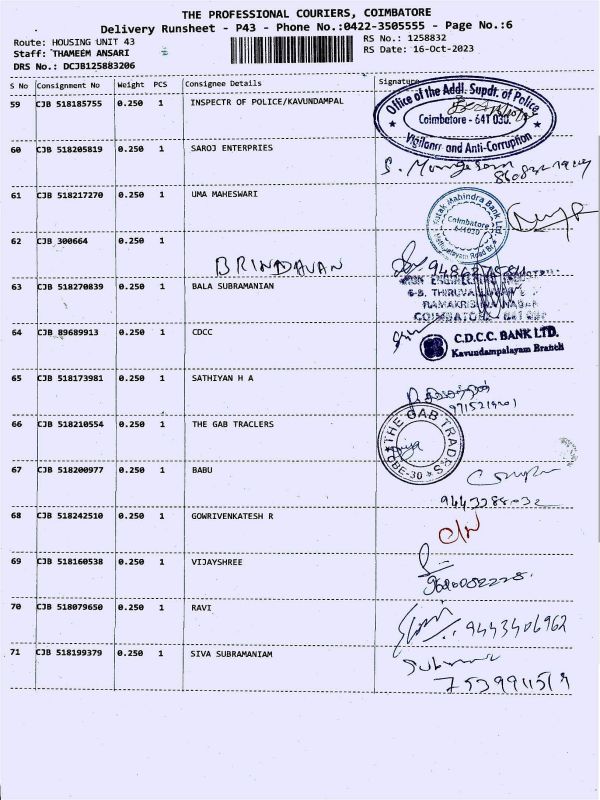 THE PROFESSIONAL COURIERS, COIMBATORE
Delivery Runsheet - P43 - Phone No.:0422-3505555 - Page No.:6
Route: HOUSING UNIT 43
RS No.: 1258832
Staff: THAMEEM ANSARI
RS Date: 16-Oct-2023
DRS No.: DCJB125883206
S No Consignment No Weight PCS Consignee Details Signature
59 CJB 518185755 0.250 1 INSPECTR OF POLICE/KAVUNDAMPAL
Office of the Addl. Supdt. of Police
Coimbatore - 641 030.
Vigilance and Anti-Corruption
60 CJB 518205819 0.250 1 SAROJ ENTERPRIES
61 CJB 518217270 0.250 1 UMA MAHESWARI
Kotak Mahindra Bank Ltd
Coimbatore
641030
62 CJB 300664 0.250 1
BRINDAVAN
63 CJB 518270839 0.250 1 BALA SUBRAMANIAN
64 CJB 89689913 0.250 1 CDCC
C.D.C.C. BANK LTD.
Kavundampalayam Branch
65 CJB 518173981 0.250 1 SATHIYAN H A
66 CJB 518210554 0.250 1 THE GAB TRACLERS
THE GAB TRADERS
CBE-30
67 CJB 518200977 0.250 1 BABU
68 CJB 518242510 0.250 1 GOWRIVENKATESH R
69 CJB 518160538 0.250 1 VIJAYSHREE
70 CJB 518079650 0.250 1 RAVI
9443406962
71 CJB 518199379 0.250 1 SIVA SUBRAMANIAM